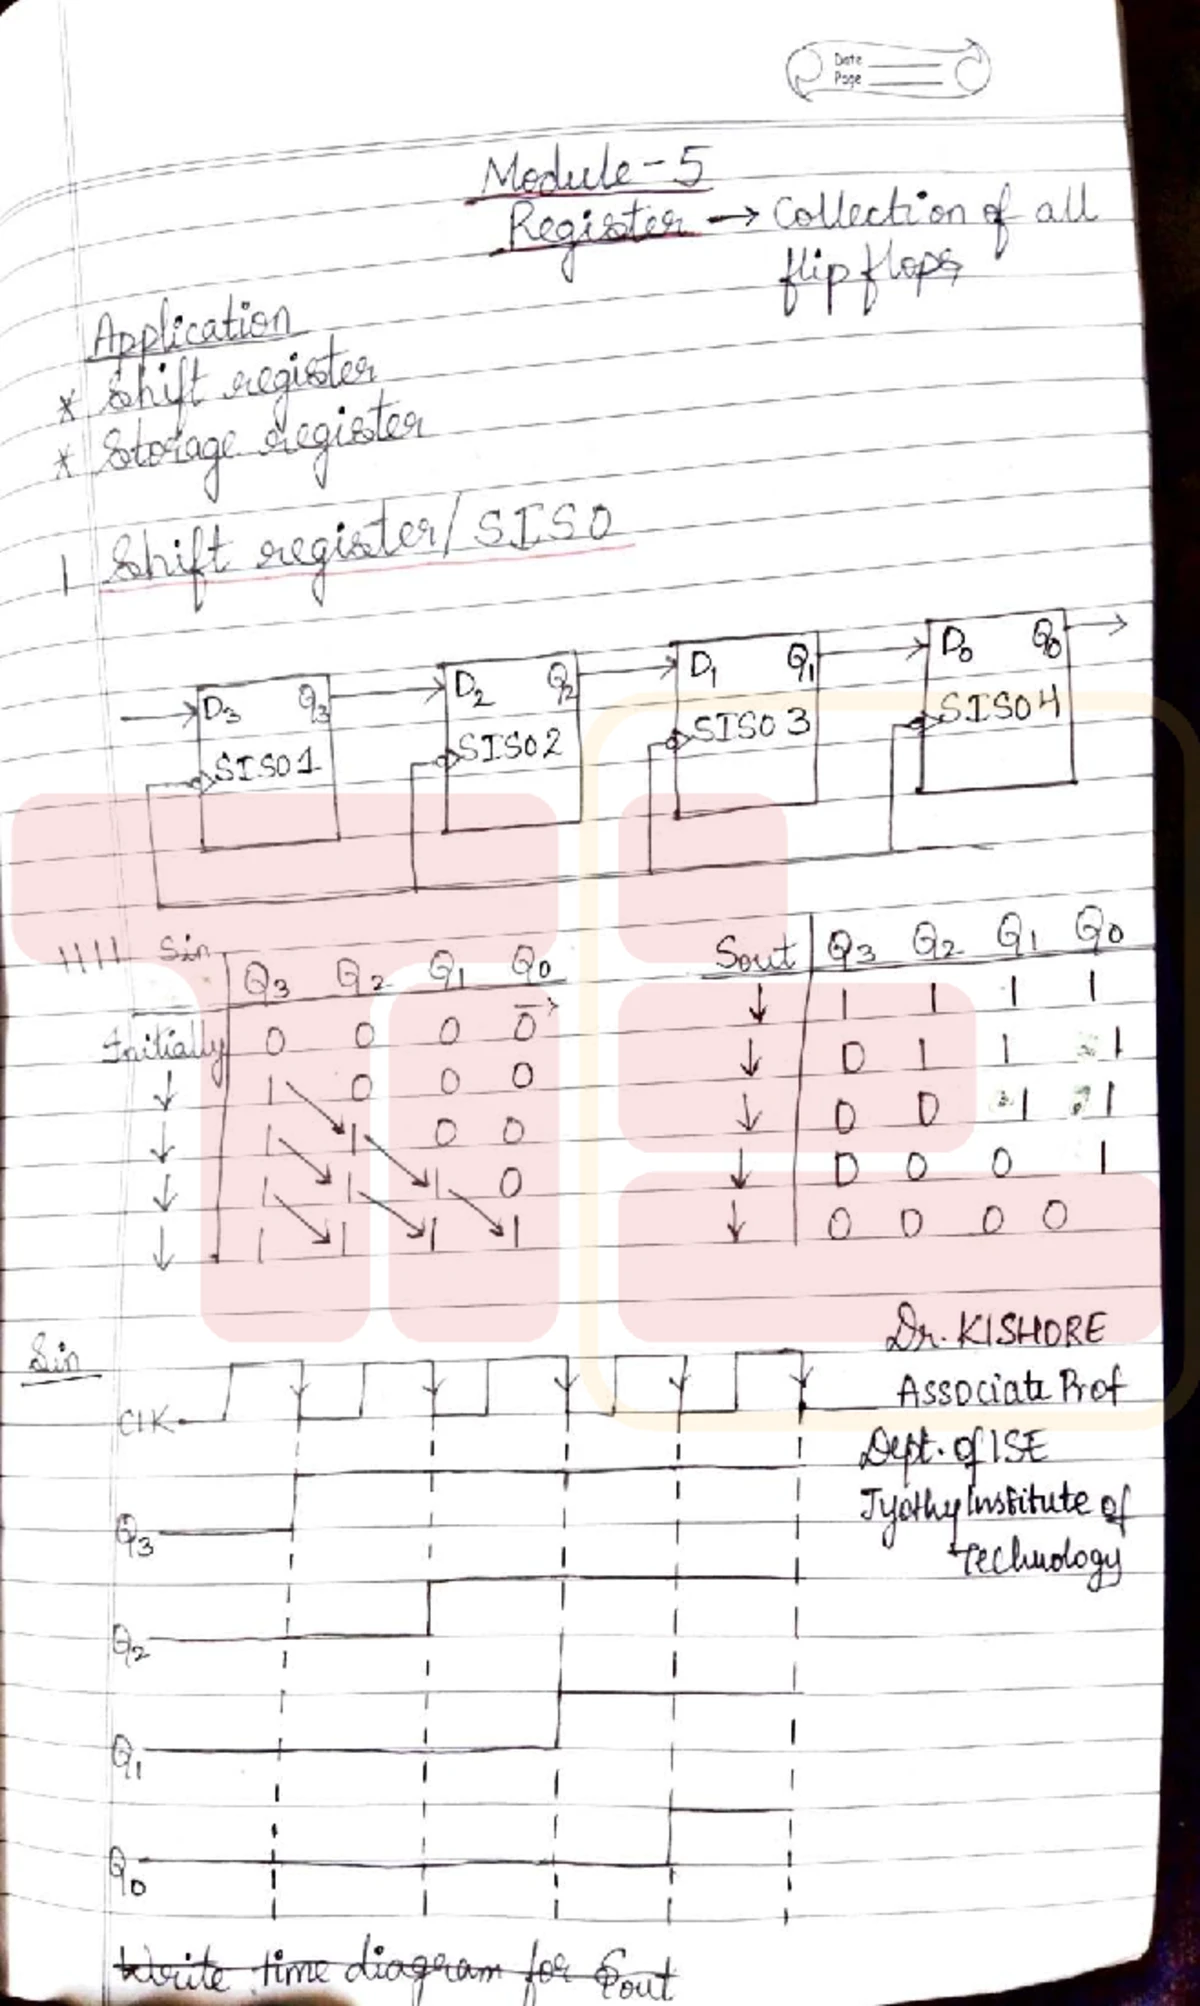 Date
Page
Module-5
Register → Collection of all
flip flops
Application
* Shift register
* Storage register
1 Shift register/SISO
D3 Q3 D2 Q2 D1 Q1 D0 Q0
SISO1 SISO2 SISO3 SISO4
1111 Sin Q3 Q2 Q1 Q0
Initially 0 0 0 0
↓ 1 0 0 0
↓ 1 1 0 0
↓ 1 1 1 0
↓ 1 1 1 1
Sout Q3 Q2 Q1 Q0
↓ 1 1 1 1
↓ 0 1 1 1
↓ 0 0 1 1
↓ 0 0 0 1
↓ 0 0 0 0
Dr. KISHORE
Associate Prof
Dept. of ISE
Jyothy Institute of
Technology
Sin
ClK
Q3
Q2
Q1
Q0
Write time diagram for Sout